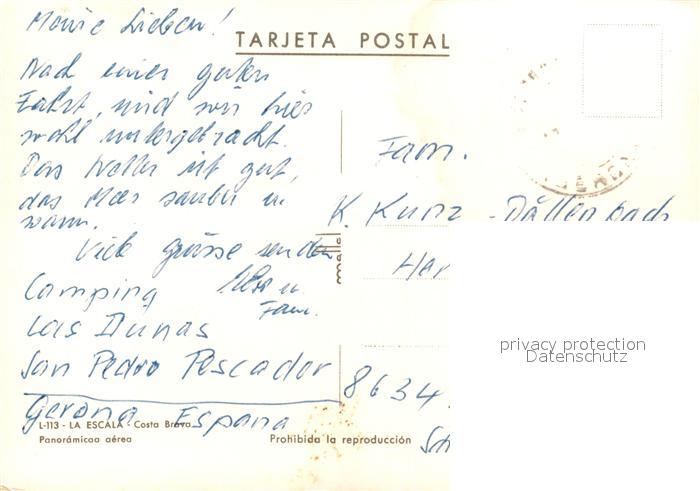 Meine Lieben!
TARJETA POSTAL
Nach einer guten
Fahrt, sind wir hier
wohl untergebracht.
Das Wetter ist gut,
das Meer sauber u.
warm.
Viele Grüsse senden
u.
Fam.
Camping
Las Dunas
San Pedro Pescador
Gerona España
L-113 - LA ESCALA - Costa Brava
Panorámicaa aérea
Prohibida la reproducción
Fam.
K. Kunz - Dällenbach
8634
privacy protection
Datenschutz